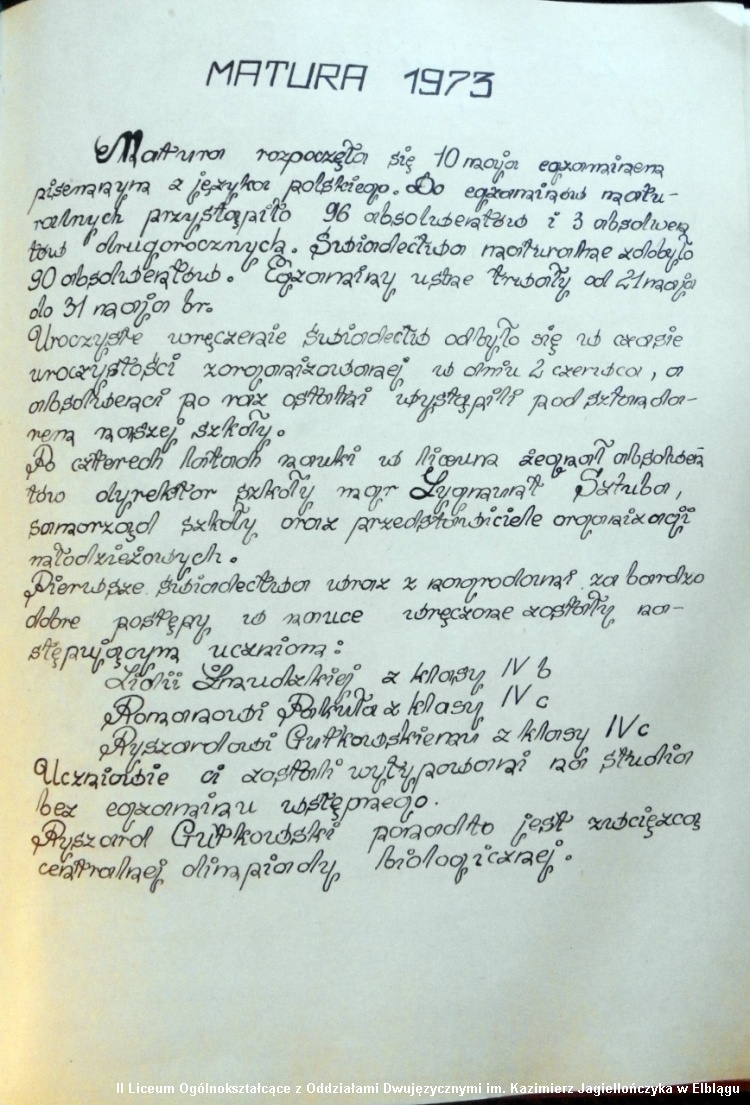 MATURA 1973
Matura rozpoczęła się 10 maja egzaminem
pisemnym z języka polskiego. Do egzaminów matu-
ralnych przystąpiło 96 absolwentów i 3 absolwen
tów drugorocznych. Świadectwa maturalne zdobyło
90 absolwentów. Egzaminy ustne trwały od 21 maja
do 31 maja br.
Uroczyste wręczenie świadectw odbyło się w czasie
uroczystości zorganizowanej w dniu 2 czerwca, a
absolwenci po raz ostatni wystąpili pod sztanda-
rem naszej szkoły.
Po czterech latach nauki w liceum żegnał absolwen
tów dyrektor szkoły mgr Zygmunt Sztuba,
samorząd szkoły oraz przedstawiciele organizacji
młodzieżowych.
Pierwsze świadectwa wraz z nagrodami za bardzo
dobre postępy w nauce wręczone zostały na-
stępującym uczniom:
Lidii Żmudzkiej z klasy IV b
Romanowi Pakuła z klasy IV c
Ryszardowi Gutkowskiemu z klasy IV c
Uczniowie ci zostali wytypowani na studia
bez egzaminu wstępnego.
Ryszard Gutkowski ponadto jest zwycięzcą
centralnej olimpiady biologicznej.
II Liceum Ogólnokształcące z Oddziałami Dwujęzycznymi im. Kazimierz Jagiellończyka w Elblągu